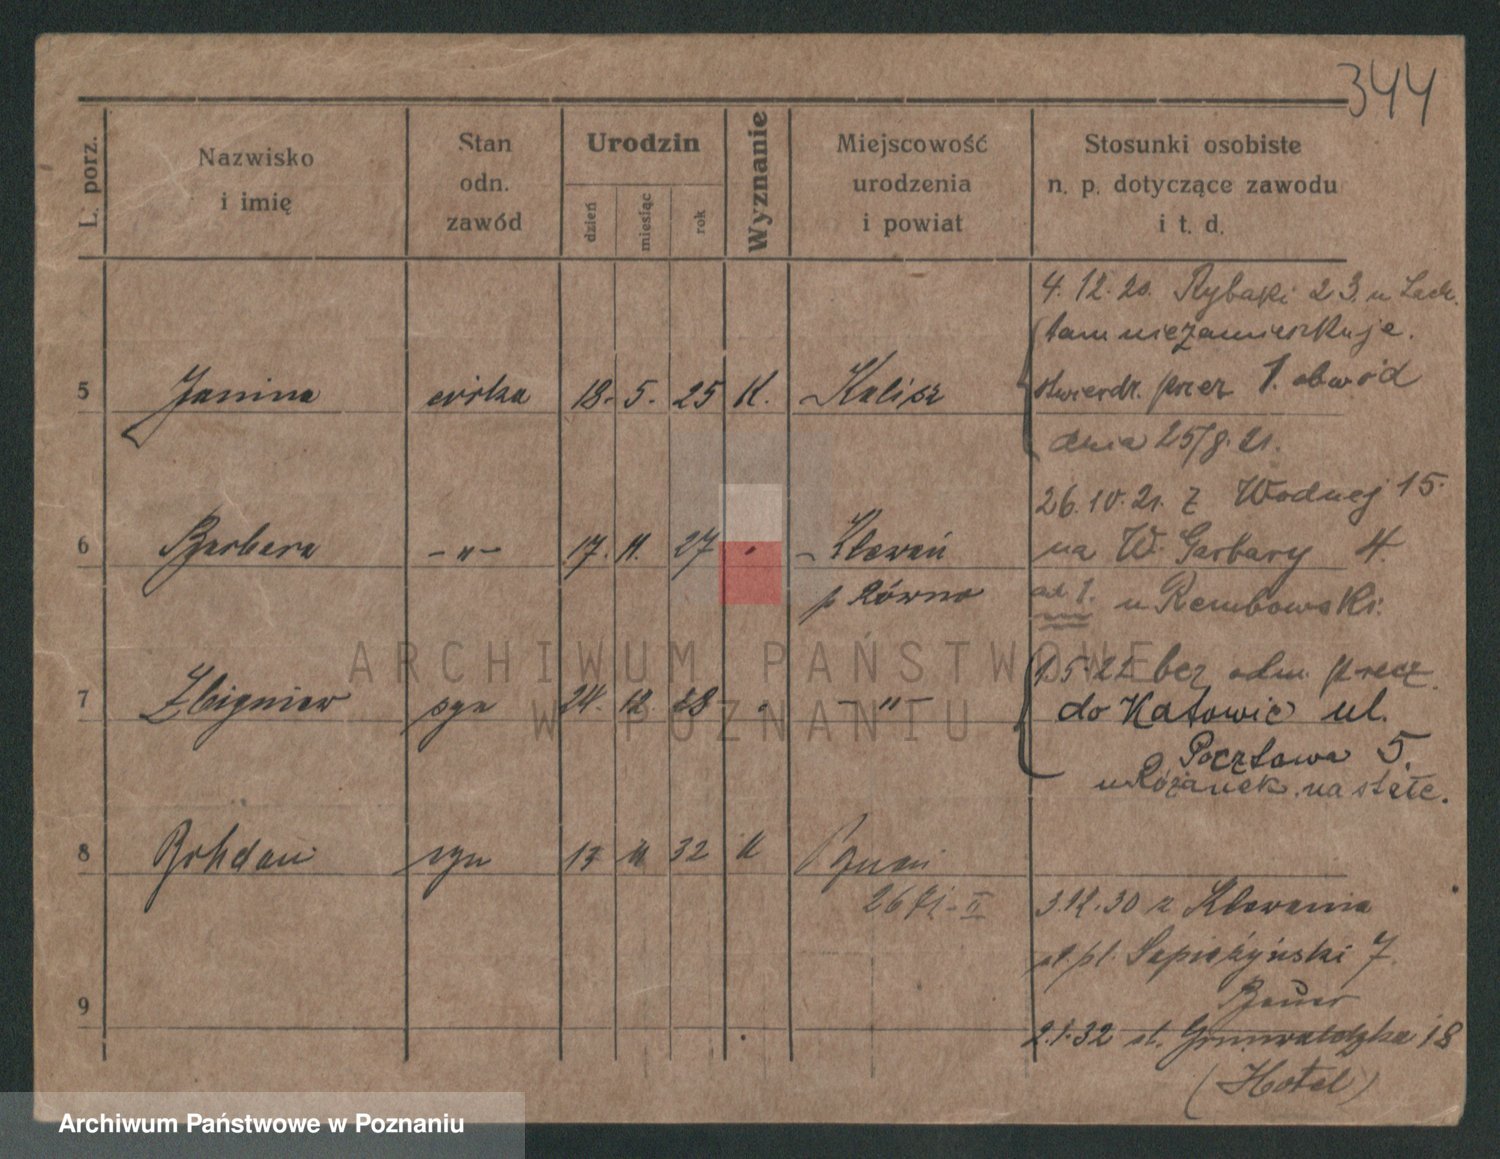 344
L. porz.
Nazwisko
i imię
Stan
odn.
zawód
Urodzin
dzień
miesiąc
rok
Wyznanie
Miejscowość
urodzenia
i powiat
Stosunki osobiste
n. p. dotyczące zawodu
i t. d.
4.12.20. Rybaki 23. u
tam niezamieszkuje.
5 Janina córka 18. 5. 25 K. Kalisz
stwierdz. przez 1. obwód
dnia 25/8.21.
26.10.21. z Wodnej 15.
6 Barbara -"- 17. 11. 27 Klewań
na W. Garbary 4.
p Równo
ad 1. u Rembowski.
1.5.22 bez odm. przez
7 Zbigniew syn 24. 12. 28 -"-
do Katowic ul.
Pocztowa 5.
u Różanek. na stałe.
8 Bohdan syn 13 11 32 K Pznań
26 II
3.12.30 z Klewania
st. pl. Sapieżyński 7.
Bauer
9
2.1.32 st. Grunwaldzka 18
(Hotel)
ARCHIWUM PAŃSTWOWE
W POZNANIU
Archiwum Państwowe w Poznaniu